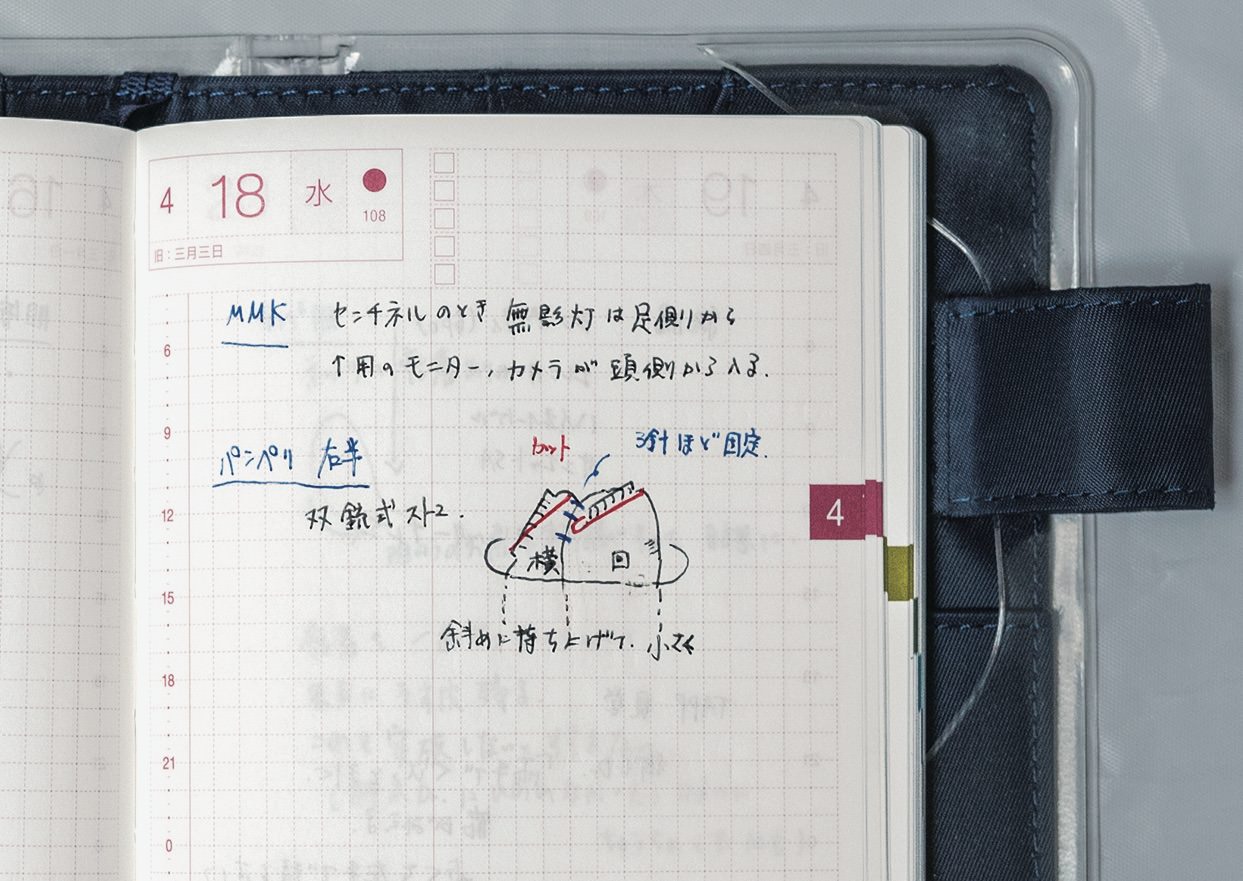 4 18 水
108
旧:三月三日
MMK センチネルのとき 無影灯は足側から
↑用のモニター、カメラが 頭側から入る.
パンペリ 右半
カット
3針ほど固定.
双銃式 ストマ.
横 回
斜めに持ち上げて. 小さく
6
9
12
15
18
21
0
4